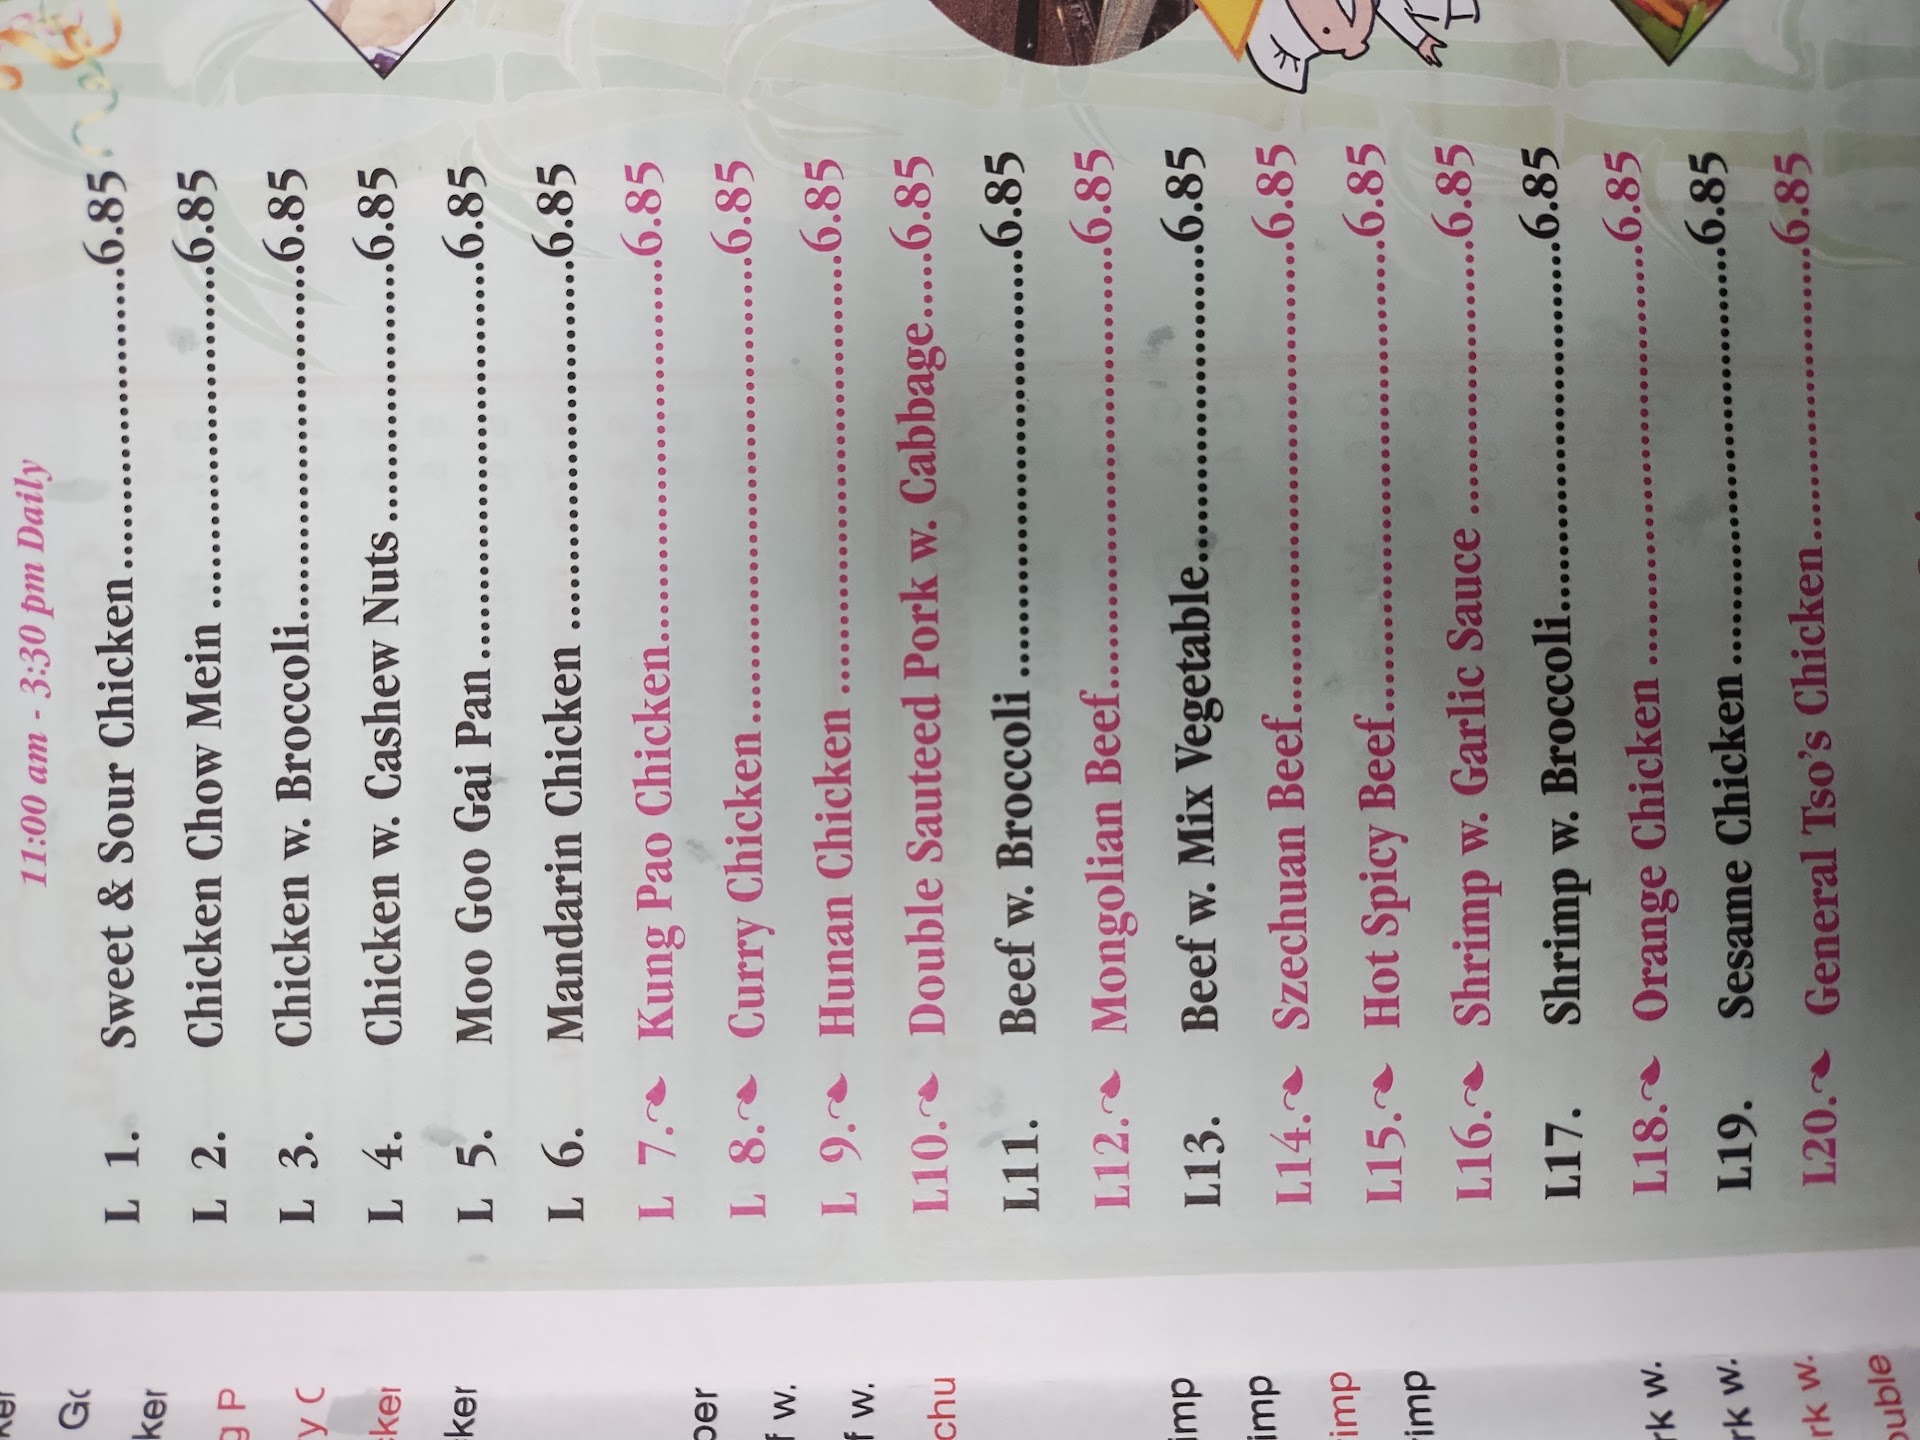 11:00 am - 3:30 pm Daily
L 1. Sweet & Sour Chicken........................6.85
L 2. Chicken Chow Mein ........................6.85
L 3. Chicken w. Broccoli........................6.85
L 4. Chicken w. Cashew Nuts..................6.85
L 5. Moo Goo Gai Pan...........................6.85
L 6. Mandarin Chicken .........................6.85
L 7. Kung Pao Chicken..........................6.85
L 8. Curry Chicken...............................6.85
L 9. Hunan Chicken .............................6.85
L10. Double Sauteed Pork w. Cabbage.....6.85
L11. Beef w. Broccoli .............................6.85
L12. Mongolian Beef..............................6.85
L13. Beef w. Mix Vegetable.....................6.85
L14. Szechuan Beef...............................6.85
L15. Hot Spicy Beef...............................6.85
L16. Shrimp w. Garlic Sauce ..................6.85
L17. Shrimp w. Broccoli.........................6.85
L18. Orange Chicken ............................6.85
L19. Sesame Chicken ............................6.85
L20. General Tso's Chicken....................6.85
ker
g P
ker
ker
per
f w.
f w.
chu
imp
imp
imp
imp
rk w.
rk w.
rk w.
ouble